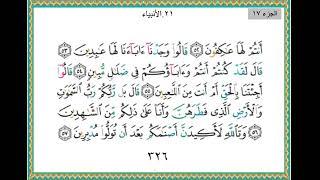 الجزء ١٧
٢١_الأنبياء
أَنتُمْ لَهَا عَٰكِفُونَ ٥٢ قَالُوا۟ وَجَدْنَآ ءَابَآءَنَا لَهَا عَٰبِدِينَ ٥٣
قَالَ لَقَدْ كُنتُمْ أَنتُمْ وَءَابَآؤُكُمْ فِى ضَلَٰلٍ مُّبِينٍ ٥٤ قَالُوٓا۟
أَجِئْتَنَا بِٱلْحَقِّ أَمْ أَنتَ مِنَ ٱللَّٰعِبِينَ ٥٥ قَالَ بَل رَّبُّكُمْ رَبُّ ٱلسَّمَٰوَٰتِ
وَٱلْأَرْضِ ٱلَّذِى فَطَرَهُنَّ وَأَنَا۠ عَلَىٰ ذَٰلِكُم مِّنَ ٱلشَّٰهِدِينَ
٥٦ وَتَٱللَّهِ لَأَكِيدَنَّ أَصْنَٰمَكُم بَعْدَ أَن تُوَلُّوا۟ مُدْبِرِينَ ٥٧
٣٢٦